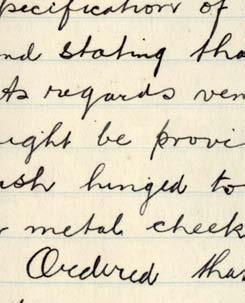 pecification of
nd stating tha
As regards ven
ught be provi
ash hinged to
metal cheek
Ordered tha